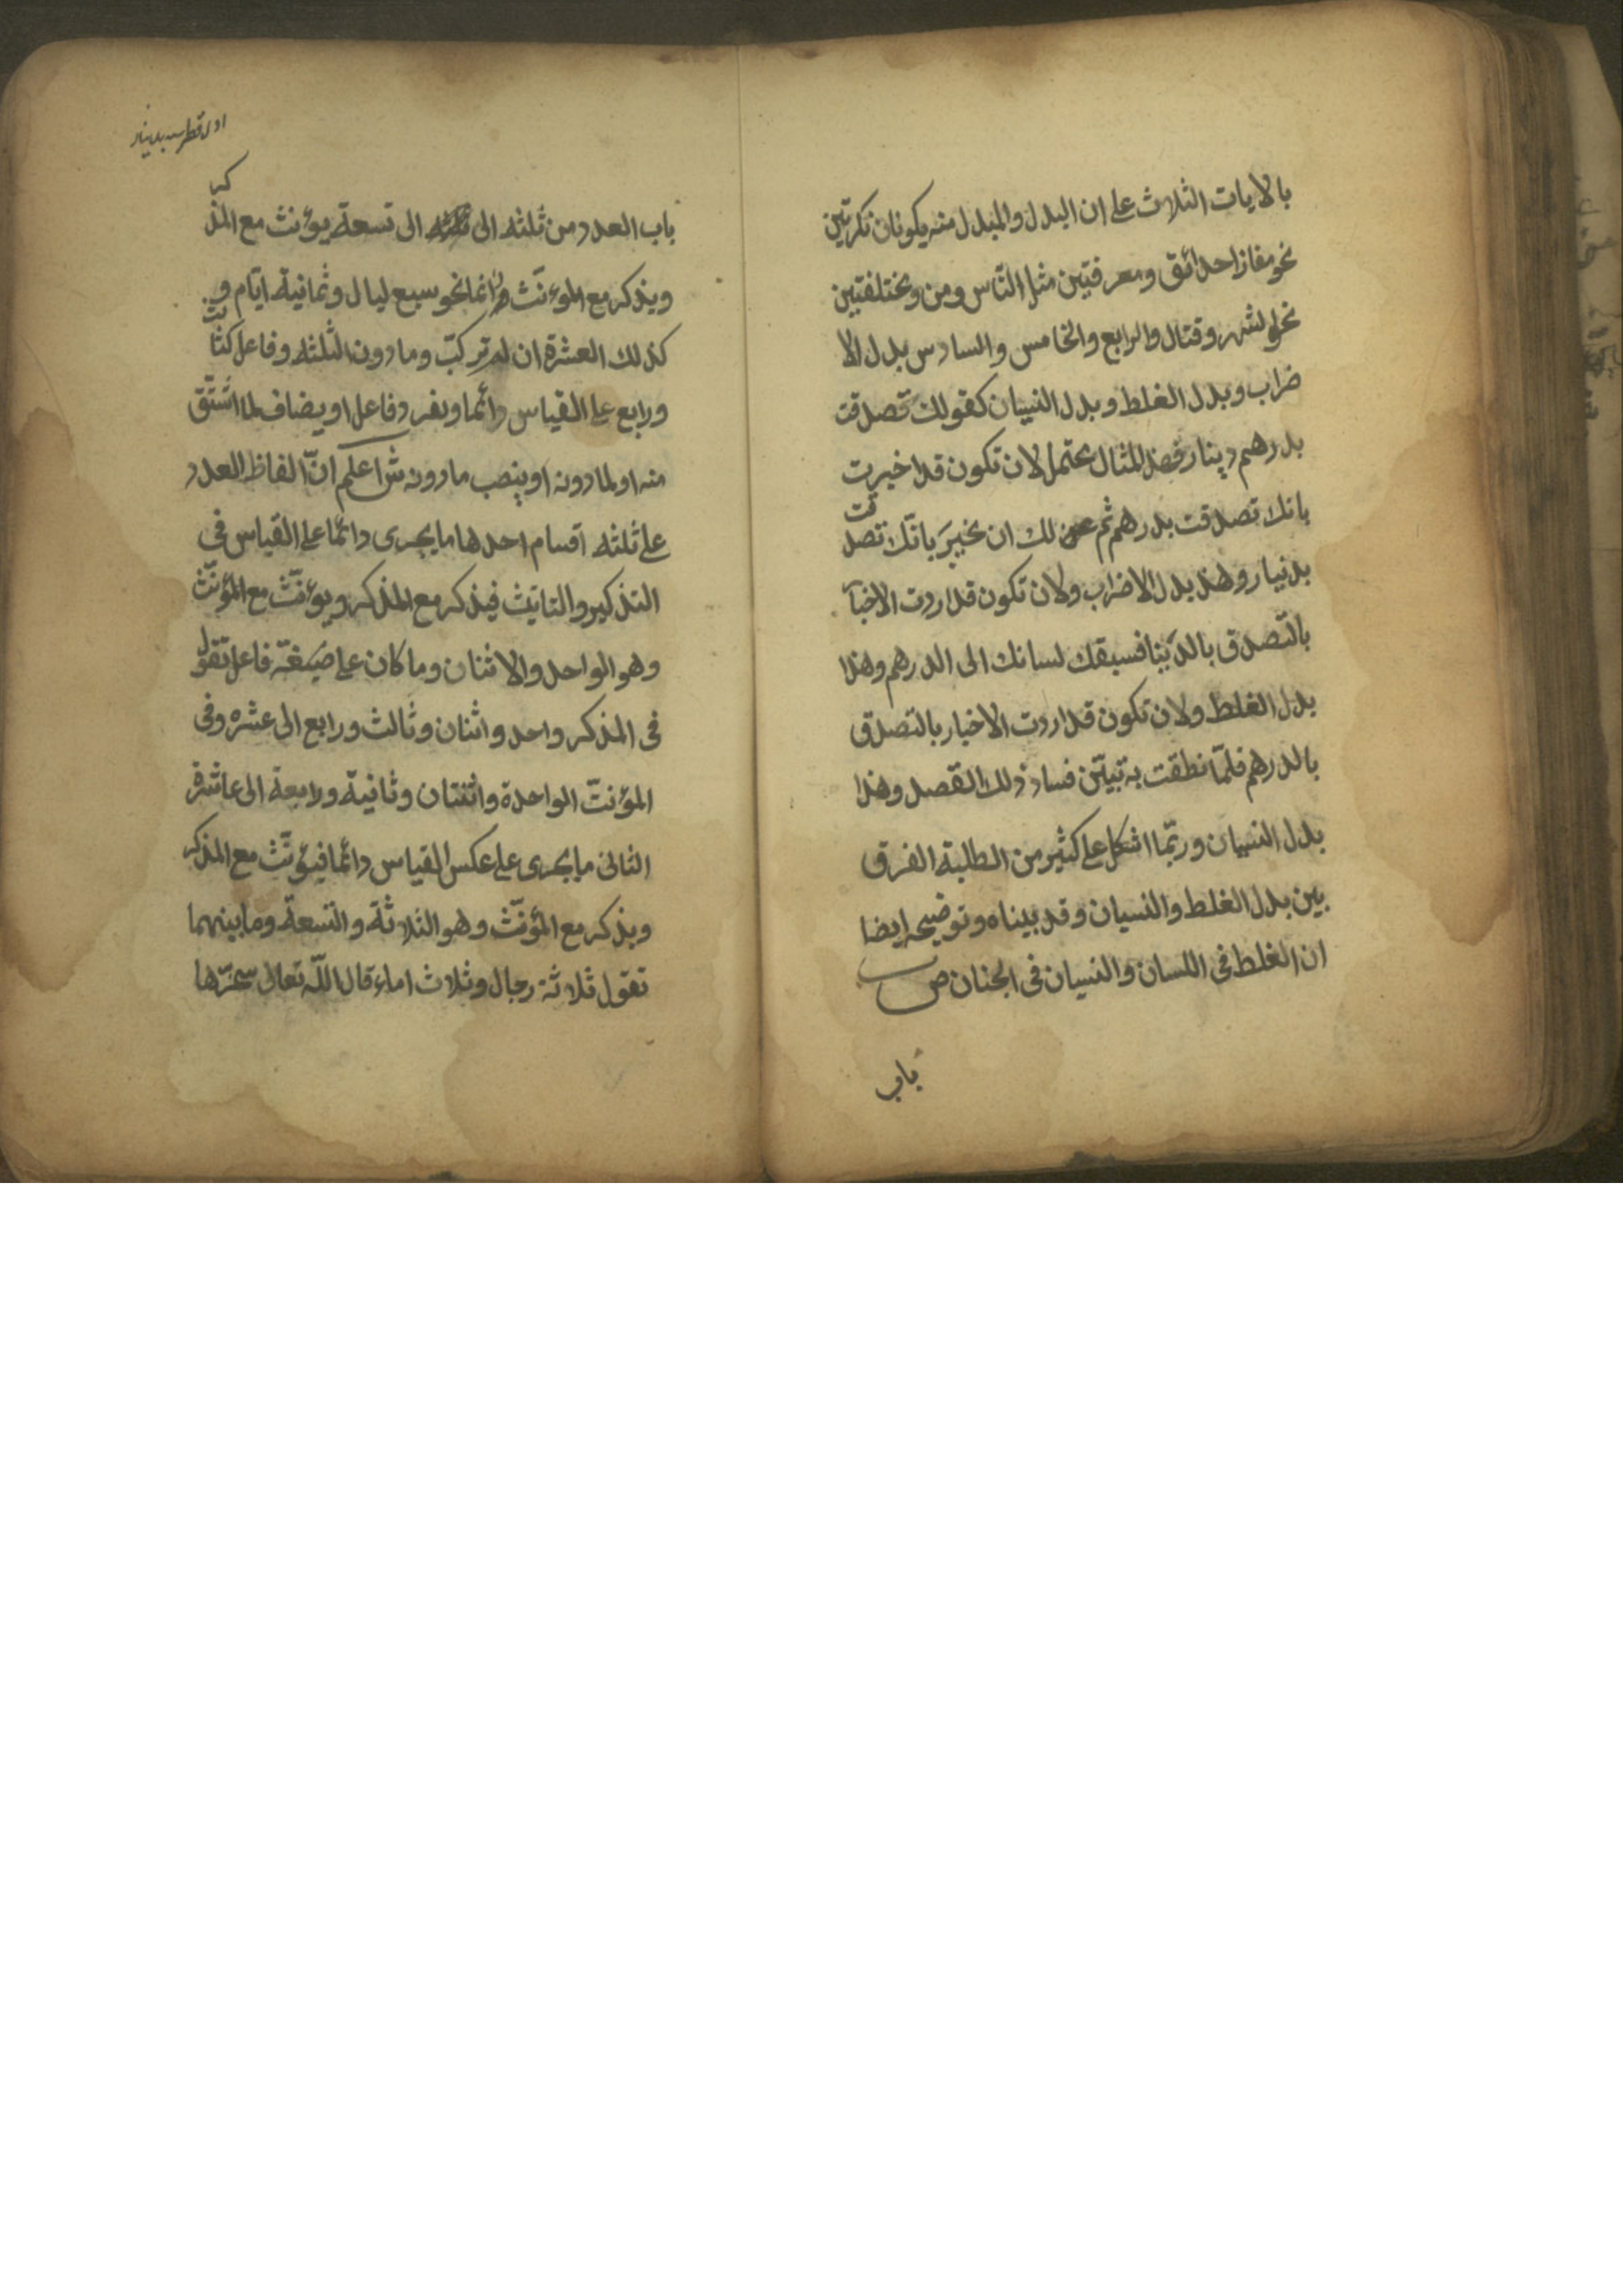 بالايات الثلاث على ان البدل والمبدل منه يكونان نكرتين
نحو مفازا حدائق ومعرفتين مثل النّاس ومن ومختلفتين
نحو الشهر وقتال والرابع والخامس والسادس بدل الا
ضراب وبدل الغلط وبدل النسيان كقولك تصدقت
بدرهم دينار فهذ المثال يحتمل لان تكون قد اخبرت
بانك تصدقت بدرهم ثم عن لك ان تخبرَ بانّك تصدقت
بدنيار وهذ بدل الاضراب ولان تكون قد اردت الاخبا
بالتّصدق بالدّينا فسبقك لسانك الى الدرهم وهذا
بدل الغلط ولان تكون قد اردت الاخبار بالتصدق
بالدرهم فلمّا نطقت به تبيّن فساد ذلك القصد وهذا
بدل النسيان وربّما اشكل على كثير من الطلبة الفرق
بين بدل الغلط والنسيان وقد بيناه وتوضيحه ايضا
ان الغلط فى اللسان والنسيان فى الجنان ص
باب
باب العدد من ثلثه الى الى تسعة يؤنث مع المذكر
ويذكر مع المؤنّث دائما نحو سبع ليال وثمانية ايّام و
كذلك العشرة ان لم تركبّ وما دون الثلثه وفاعل كثالث
ورابع على القياس دائما ويفرد فاعل او يضاف لما اشتقّ
منه او لما دونه او ينصب ما دونه ش اعلم انّ الفاظ العدد
على ثلثه اقسام احدها ما يجرى دائما على القياس فى
التذكير والتانيث فيذكر مع المذكر ويؤنّث مع المؤنّث
وهو الواحد والاثنان وما كان على صيغة فاعل تقول
فى المذكر واحد واثنان وثالث ورابع الى عشره وفى
المؤنثّ الواحدة واثنتان وثانية ورابعة الى عاشرة
الثانى ما يجرى على عكس القياس دائما فيؤنّث مع المذكر
ويذكر مع المؤنّث وهو الثلاثة والتسعة وما بينهما
تقول ثلاثة رجال وثلاث اماء قال اللّه تعالى سخّرها